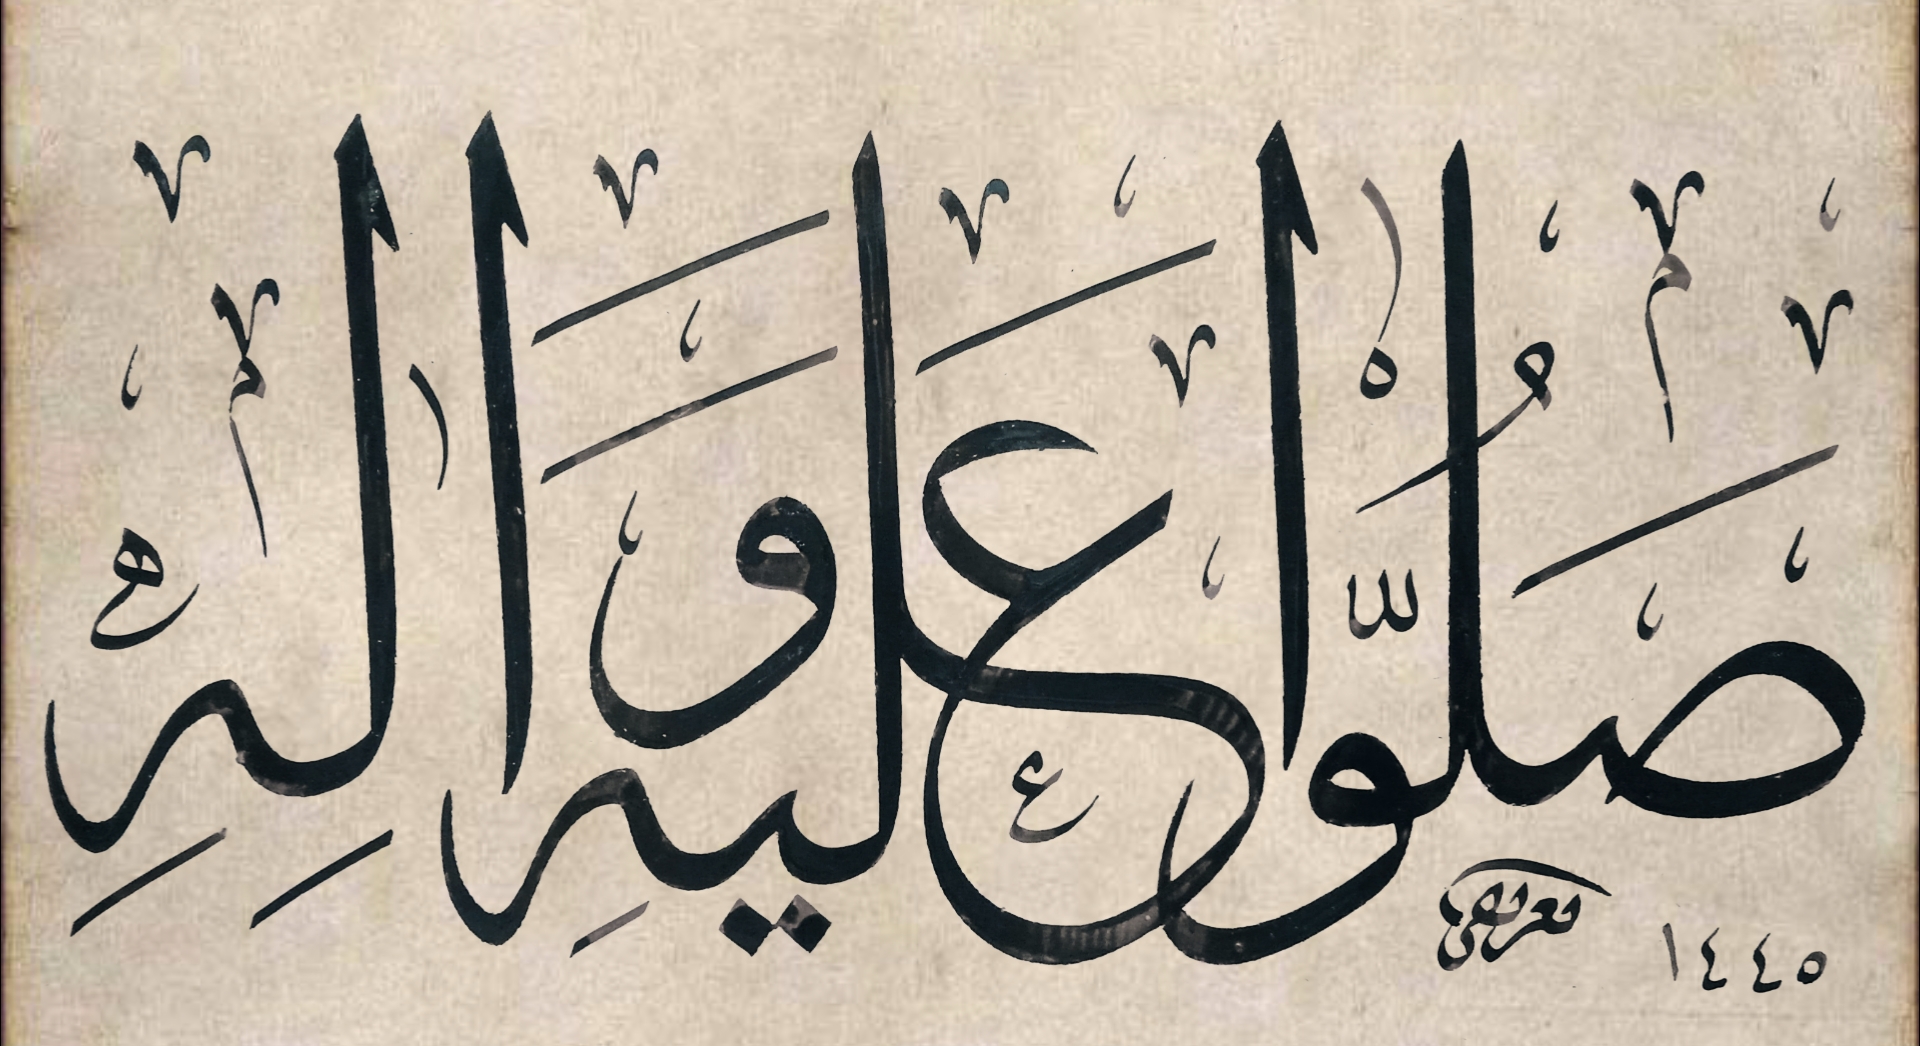 صَلُّوا عَلَيْهِ وَاٰلِهِ
١٤٤٥